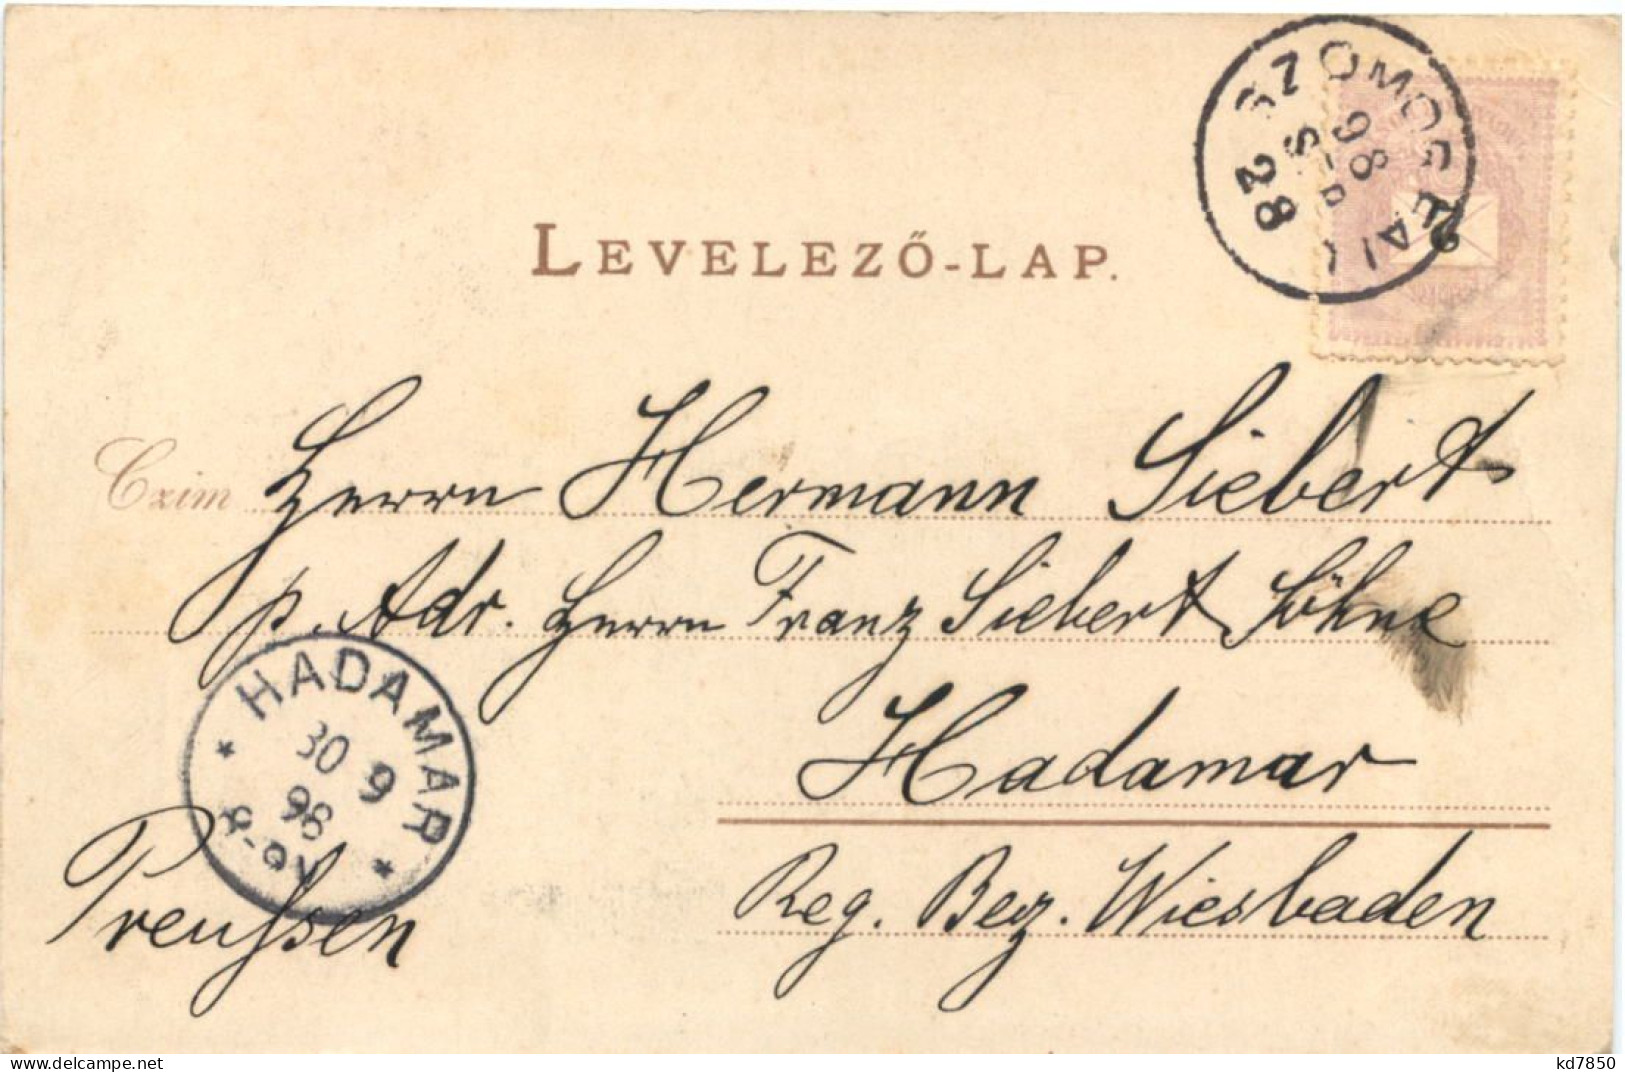 98 SEP 28
LEVELEZŐ-LAP.
Czim Herrn Hermann Siebert
p. Adr. Herrn Franz Siebert Söhne
Hadamar
Reg. Bez. Wiesbaden
Preußen
HADAMAR
30 9
98
kd7850